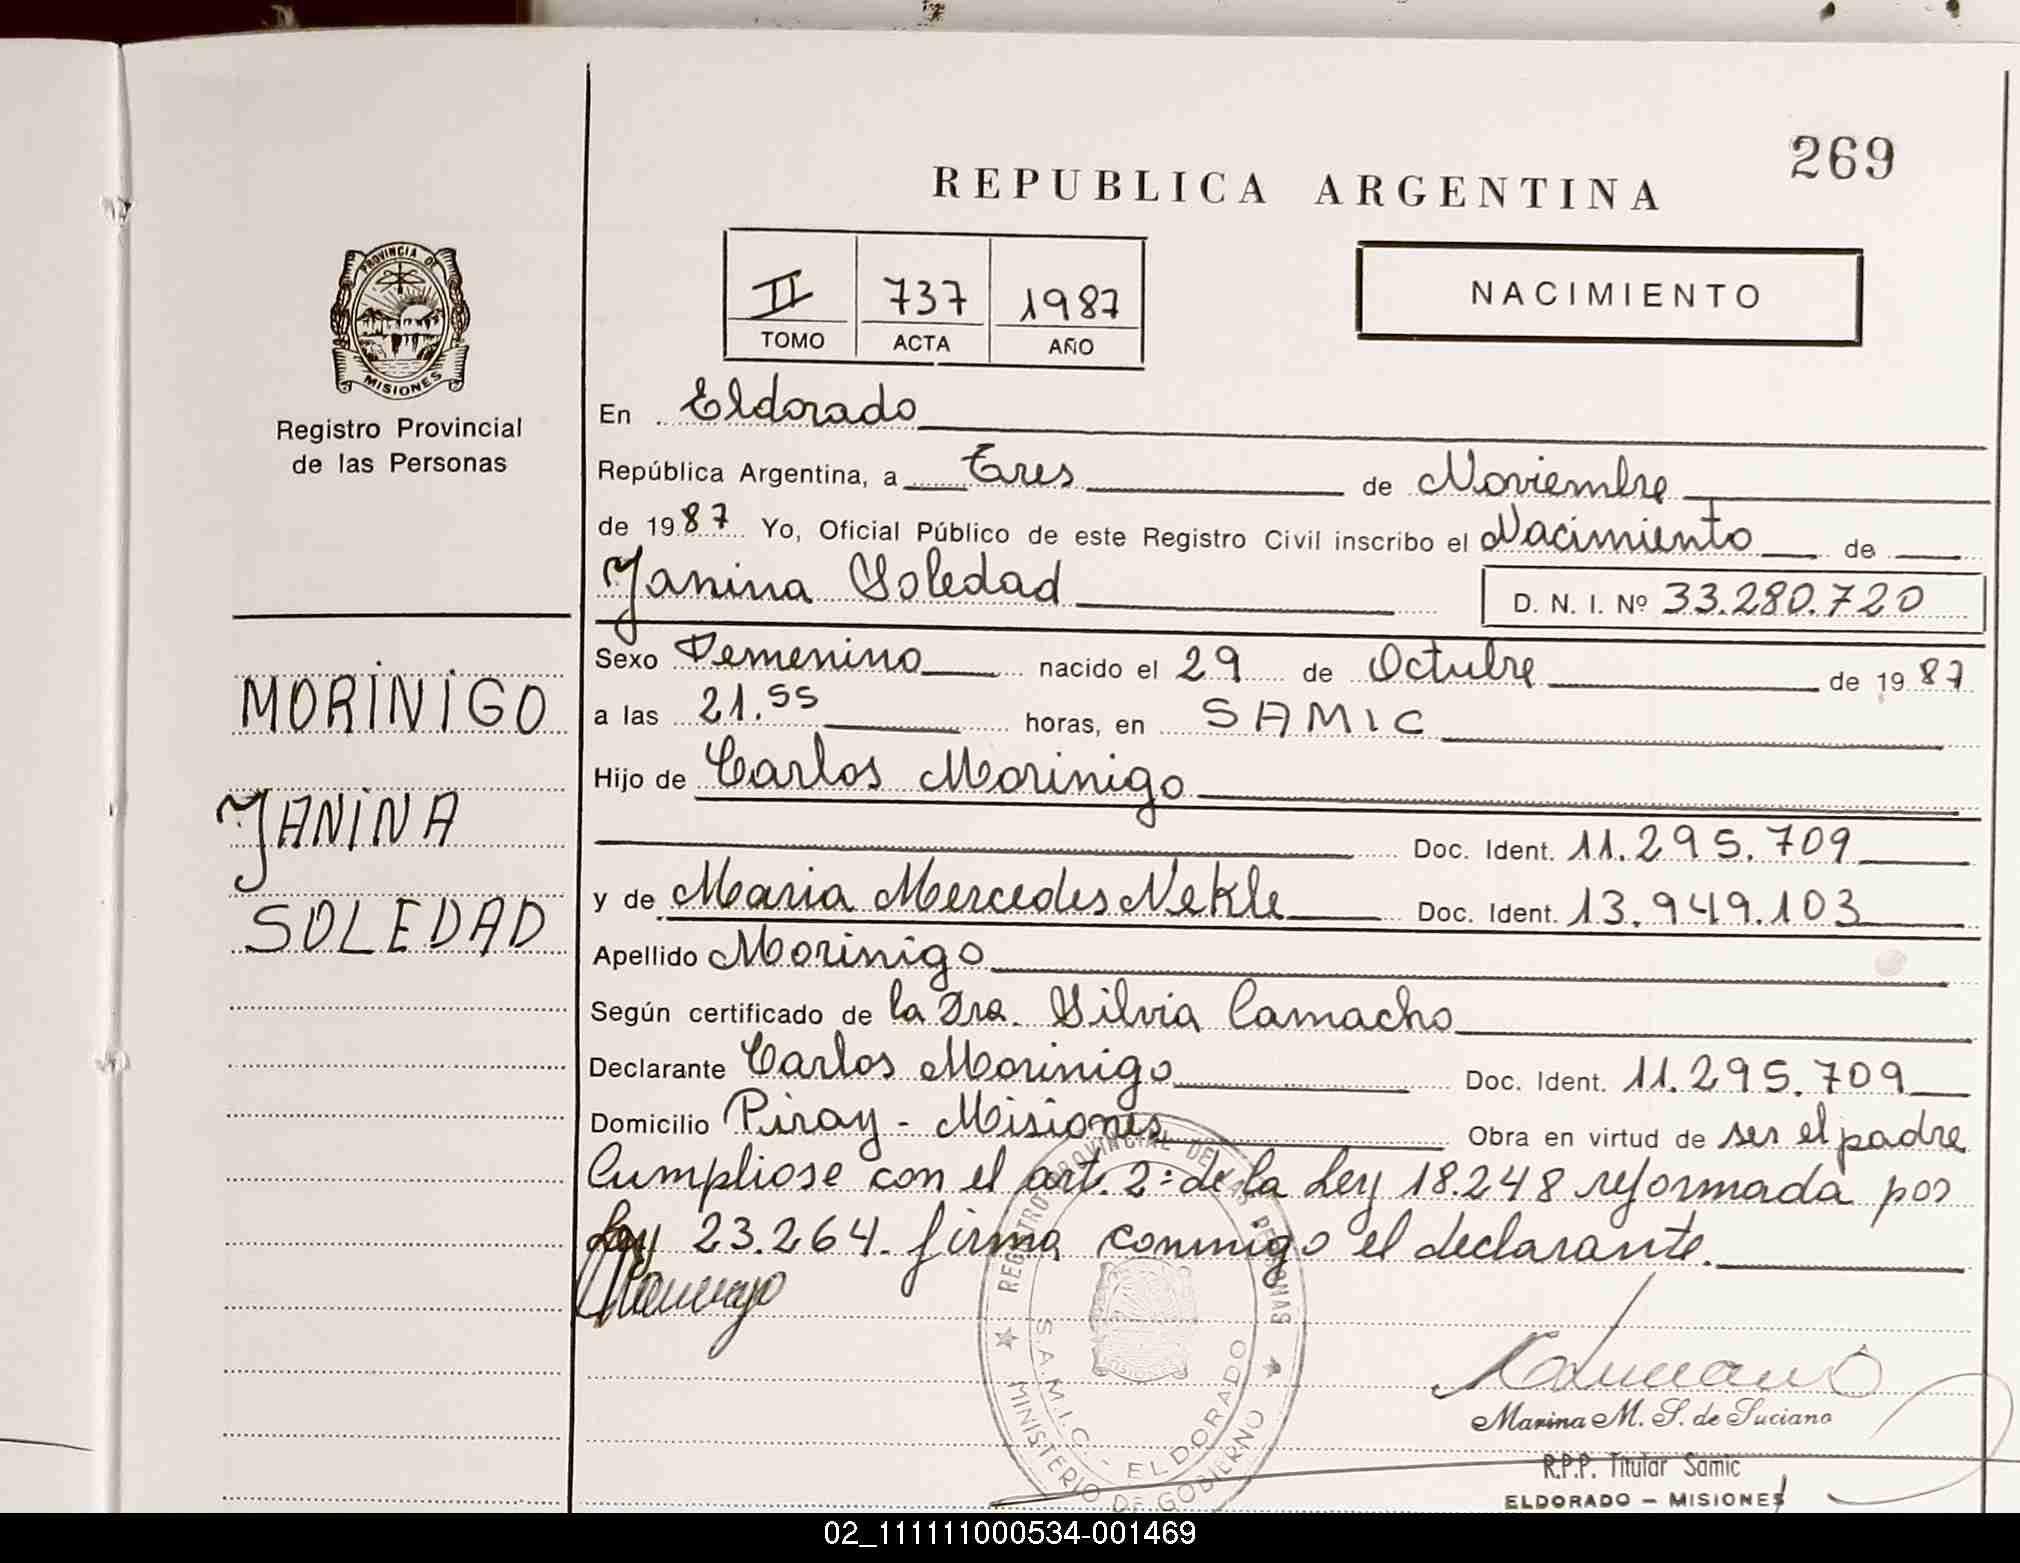 269
REPUBLICA ARGENTINA
PROVINCIA DE
MISIONES
Registro Provincial
de las Personas
II 737 1987
TOMO ACTA AÑO
NACIMIENTO
En Eldorado
República Argentina, a Tres de Noviembre
de 1987 Yo, Oficial Público de este Registro Civil inscribo el Nacimiento de
Yanina Soledad D. N. I. Nº 33.280.720
Sexo Femenino nacido el 29 de Octubre de 1987
a las 21.55 horas, en SAMIC
Hijo de Carlos Morinigo
Doc. Ident. 11.295.709
y de Maria Mercedes Nekle Doc. Ident. 13.949.103
Apellido Morinigo
Según certificado de la Dra. Silvia Camacho
Declarante Carlos Morinigo Doc. Ident. 11.295.709
Domicilio Piray - Misiones Obra en virtud de ser el padre
Cumpliose con el art. 2: de la Ley 18.248 reformada por
Ley 23.264. firma conmigo el declarante.
MORINIGO
YANINA
SOLEDAD
REGISTRO PROVINCIAL DE LAS PERSONAS
S.A.M.I.C. - ELDORADO
MINISTERIO DE GOBIERNO
Marina M. S. de Luciano
R.P.P. Titular Samic
ELDORADO – MISIONES
02_111111000534-001469